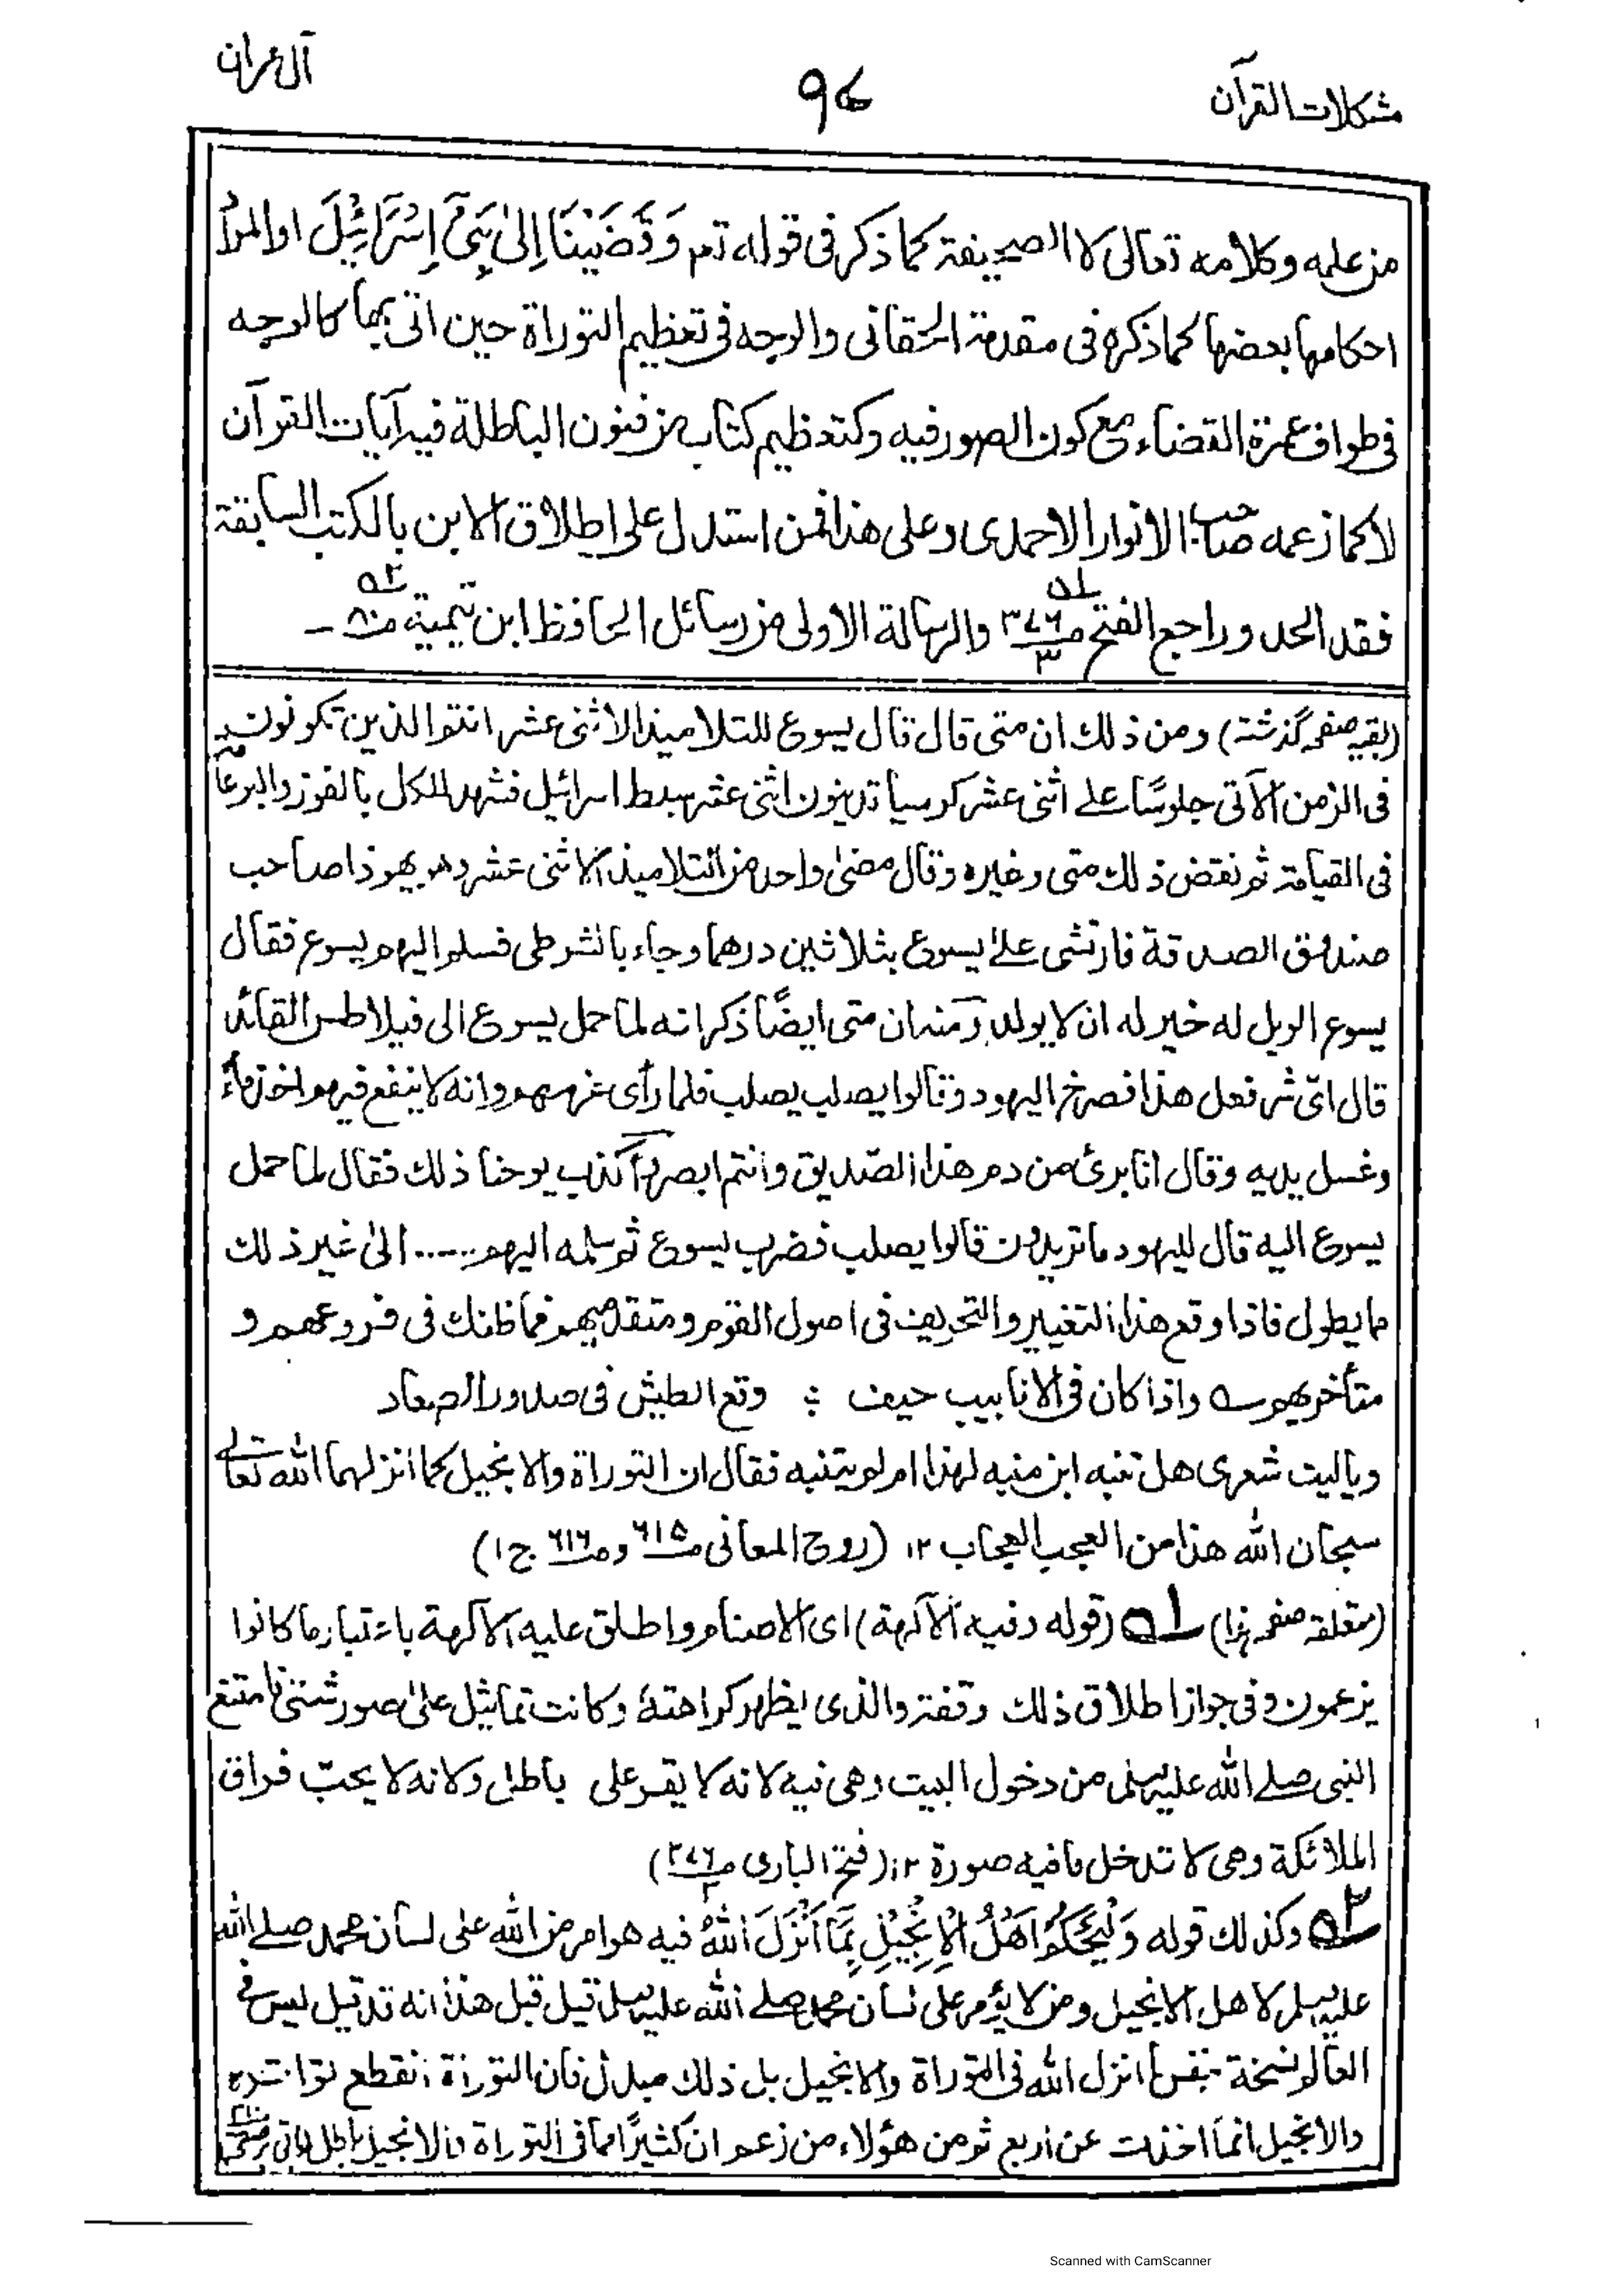 مشكلات القرآن
٩٧
آل عمران
من علمه وكلامه تعالى لا الصحيفة كما ذكر فى قوله تعم وَقَضَيْنَا إِلىٰ بَنِيٓ إِسْرَآئِيْلَ او المراد
احكامها بعضها كما ذكره فى مقدمة الحقانى والوجه فى تعظيم التوراة حين اتى بها كالوجه
فى طواف عمرة القضاء مع كون الصور فيه وكتعظيم كتاب من فنون الباطلة فيه آيات القرآن
لا كما زعمه صاحب الانوار الاحمدى وعلى هذا فمن استدل على اطلاق الابن بالكتب السابقة
فقد الحد وراجع الفتح ص٣٧٦/٣ ٥١ والرسالة الاولى من رسائل الحافظ ابن تيمية ص٨٠ ٥٢ ـ
(بقيه صفحه گذشته) ومن ذلك ان متى قال قال يسوع للتلاميذ الاثنى عشر انتم الذين تكونون معى
فى الزمن الآتى جلوسًا على اثنى عشر كرسيا تدينون اثنى عشر سبط اسرائيل فشهد للكل بالفوز والبر عامة
فى القيامة ثم نقض ذلك متى وغيره وقال مضىٰ واحد من التلاميذ الاثنى عشر وهو يهوذا صاحب
صندوق الصدقة فارتشى علىٰ يسوع بثلاثين درهما وجاء بالشرطى فسلم اليهم يسوع فقال
يسوع الويل له خير له ان لا يولد ومنه ان متى ايضًا ذكر انه لما حمل يسوع الى فيلاطس القائد
قال اىّ شر فعل هذا فصرخ اليهود وقالوا يصلب يصلب فلما رأى عزمهم وانه لا ينفع فيهم اخذ ماءً
وغسل يديه وقال انا برئ من دم هذا الصّديق وانتم ابصر وآكذب يوحنا ذلك فقال لما حمل
يسوع اليه قال لليهود ما تريدون قالوا يصلب فضرب يسوع ثم سلمه اليهم ...... الىٰ غير ذلك
مما يطول فاذا وقع هذا التغيير والتحريف فى اصول القوم ومتقدميهم فما ظنك فى فروعهم و
متأخريهم ؎ واذا كان فى الانابيب حيف ؛ وقع الطيش فى صدور الصعاد
وياليت شعرى هل تنبه ابن منبه لهذا ام لم يتنبه فقال ان التوراة والانجيل كما انزلهما الله تعالے
سبحان الله هذا من العجب العجاب ١٢ (روح المعانى ص٦١٥ وص٦١٦ ج١)
(متعلقه صفحه هذا) ٥١ (قوله وفيه الآلهة) اى الاصنام واطلق عليه الآلهة باعتبار ما كانوا
يزعمون وفى جواز اطلاق ذلك وقفة والذى يظهر كراهته وكانت تماثيل علىٰ صور شتى فامتنع
النبى صلے الله عليه وسلم من دخول البيت وهى فيه لانه لا يقر على باطل ولانه لا يحبّ فراق
الملائكة وهى لا تدخل ما فيه صورة ١٢ (فتح البارى ص٣٧٦/٣)
٥٢ وكذلك قوله وَلْيَحْكُمْ اَهْلُ الْاِنْجِيْلِ بِمَا اَنْزَلَ اللّٰهُ فيه هو امر من الله على لسان محمد صلے الله
عليه وسلم لاهل الانجيل ومن لا يؤمر على لسان محمد صلے الله عليه وسلم قيل قبل هذا انه قد قيل ليس فى
العالم نسخة بنفس ما انزل الله فى التوراة والانجيل بل ذلك مبدل فان التوراة انقطع تواترها
والانجيل انما اخذت عن اربع ثم من هؤلاء من زعم ان كثيرًا مما فى التوراة والانجيل باطل (باقى برصفحه
Scanned with CamScanner